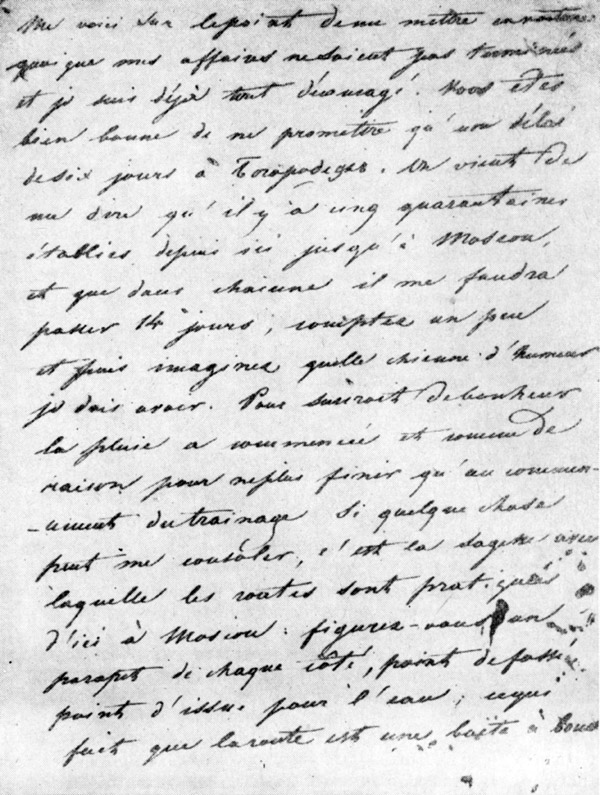 Me voici sur le point de me mettre en route
quoique mes affaires ne soient pas terminées
et je suis déjà tout découragé. Vous êtes
bien bonne de ne promettre qu'un délai
de six jours à Bogorodsk. On vient de
me dire qu'il y a cinq quarantaines
établies depuis ici jusqu'à Moscou,
et que dans chacune il me faudra
passer 14 jours; comptez un peu
et puis imaginez quelle chienne d'humeur
je dois avoir. Pour surcroit de bonheur
la pluie a commencée et comme de
raison pour ne plus finir qu'au commen-
-cement du trainage Si quelque chose
peut me consoler, c'est la sagesse avec
laquelle les routes sont pratiquées
d'ici à Moscou: figurez-vous, un
parapet de chaque côté, point de fossé
point d'issue pour l'eau; ce qui
fait que la route est une boëte à boue